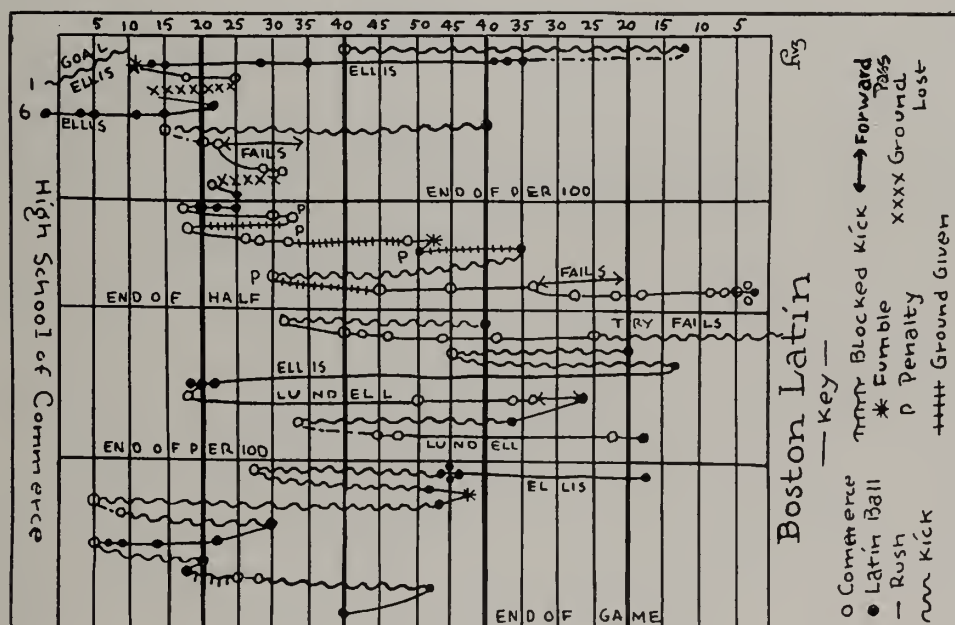 5 10 15 20 25 30 35 40 45 50 45 40 35 30 25 20 15 10 5
GOAL
ELLIS
1
ELLIS
XXXXXXXX
6
ELLIS
FAILS
XXXXX
END OF PERIOD
P
P
P
P
FAILS
END OF HALF
TRY FAILS
ELLIS
LUNDELL
LUNDELL
END OF PERIOD
ELLIS
END OF GAME
High School of Commerce
Boston Latin
— Key —
O Commerce
Latin Ball
— Rush
Kick
Blocked Kick
Fumble
P Penalty
Ground Given
Forward Pass
xxxx Ground Lost